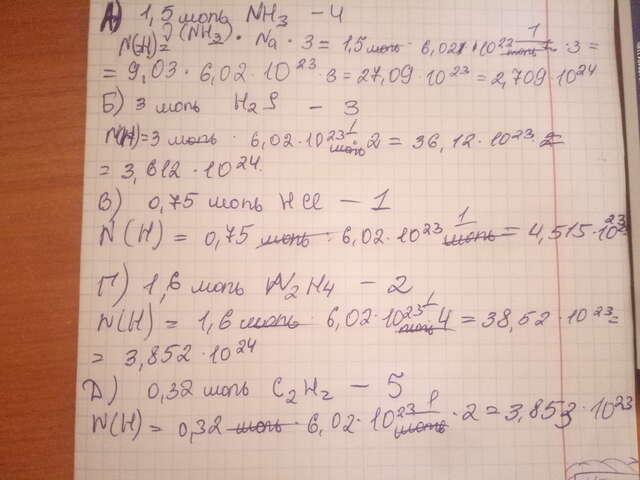 А) 1,5 моль NH3 – 4
N(H)= ν(NH3) · Na · 3 = 1,5 моль · 6,02 · 10^23 1/моль · 3 =
= 9,03 · 6,02 · 10^23 · 3 = 27,09 · 10^23 = 2,709 · 10^24
Б) 3 моль H2S – 3
N(H)=3 моль · 6,02 · 10^23 1/моль · 2 = 36,12 · 10^23 =
= 3,612 · 10^24
В) 0,75 моль HCl – 1
N(H) = 0,75 моль · 6,02 · 10^23 1/моль = 4,515 · 10^23
Г) 1,6 моль N2H4 – 2
N(H) = 1,6 моль · 6,02 · 10^23 1/моль · 4 = 38,52 · 10^23 =
= 3,852 · 10^24
Д) 0,32 моль C2H2 – 5
N(H) = 0,32 моль · 6,02 · 10^23 1/моль · 2 = 3,853 · 10^23